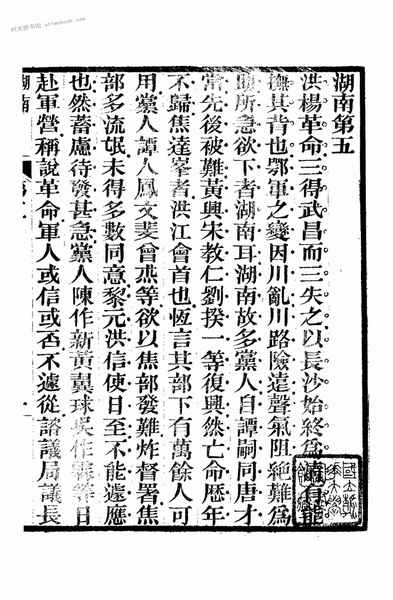 湖南第五
洪楊革命三得武昌而三失之以長沙始終為清有能
撫其背也鄂軍之變因川亂川路險遠聲氣阻絕難為
所急欲下者湖南耳湖南故多黨人自譚嗣同唐才
常先後被難黃興宋教仁劉揆一等復興然亡命歷年
不歸焦達峯者洪江會首也恆言其部下有萬餘人可
用黨人譚人鳳文斐曾杰等欲以焦部發難炸督署焦
部多流氓未得多數同意黎元洪信使日至不能遽應
也然蓄慮待發甚急黨人陳作新黃翼球吳作霖等日
赴軍營稱說革命軍人或信或否不遽從諮議局議長
湖南